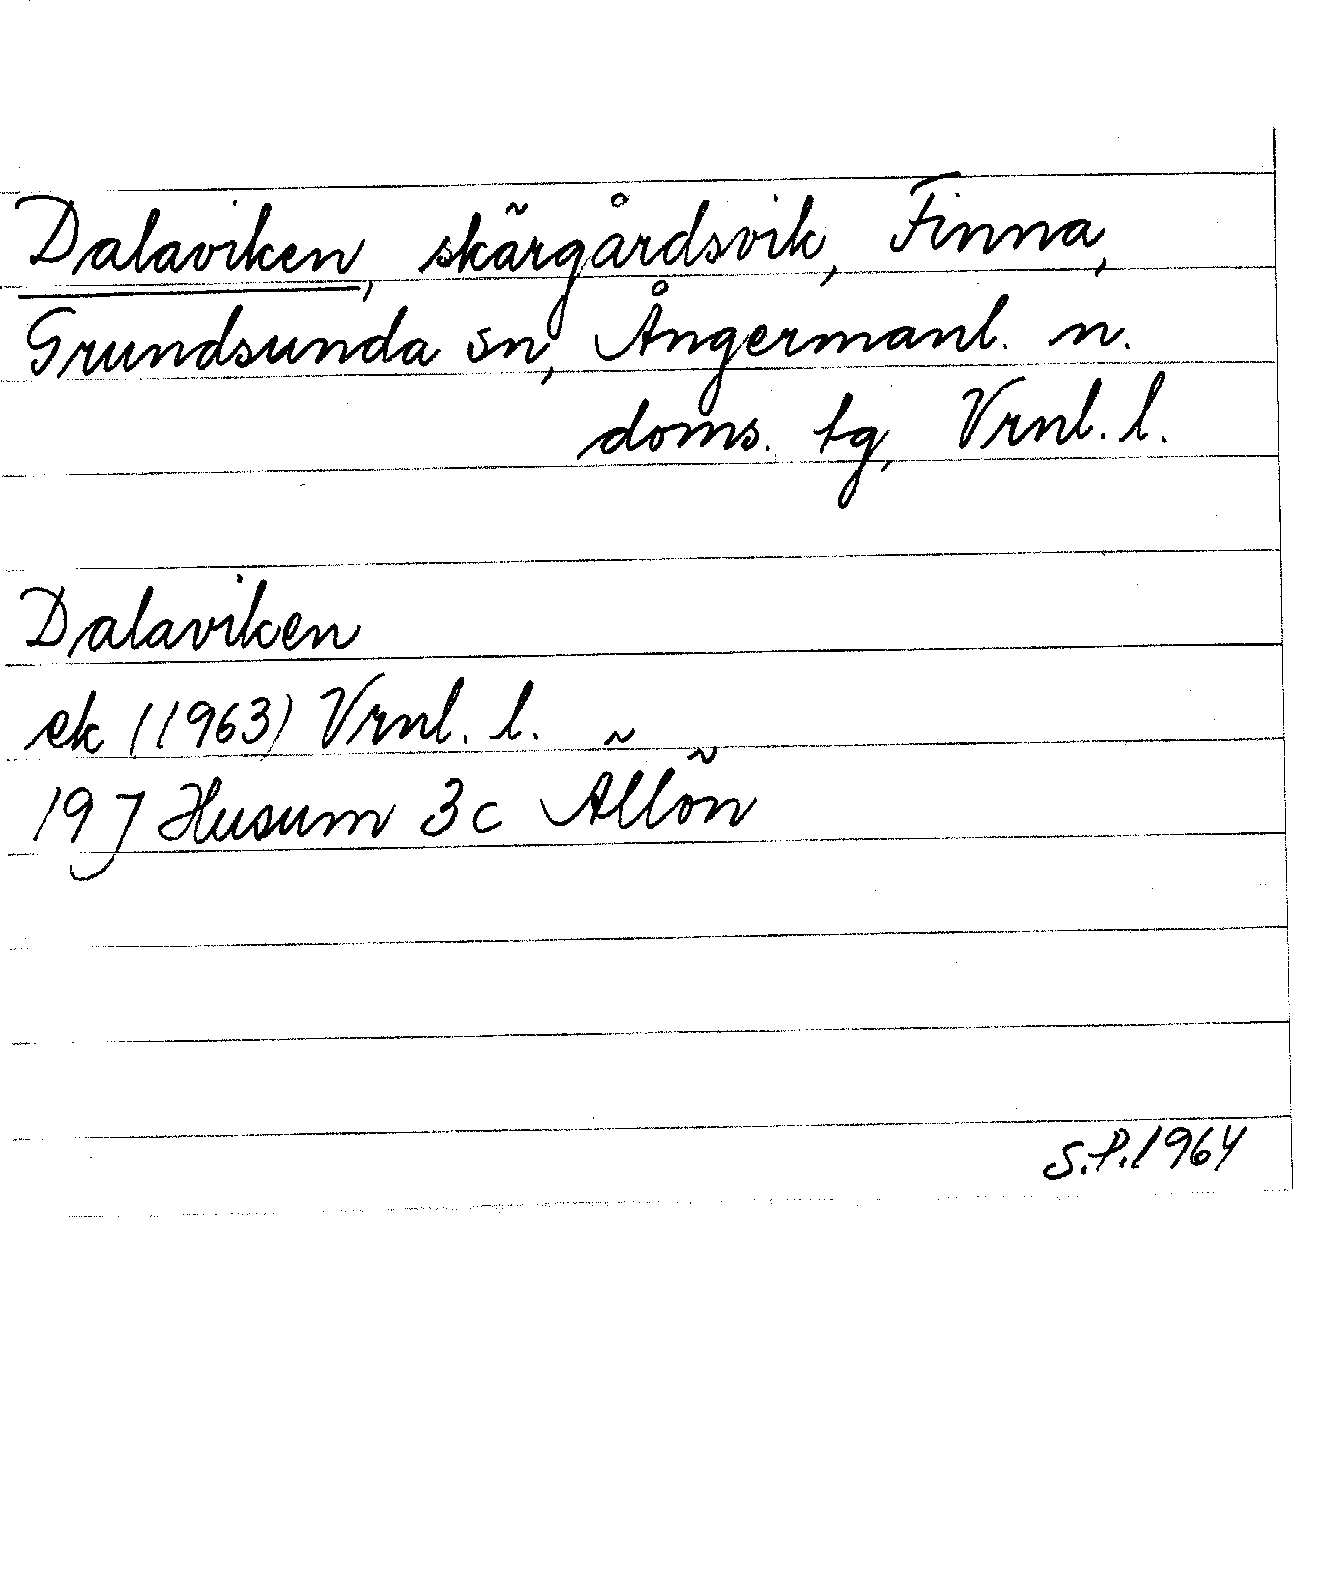 Dalaviken, skärgårdsvik, Finna,
Grundsunda sn, Ångermanl. n.
doms. tg, Vrnl. l.
Dalaviken
ek (1963) Vrnl. l.
19 J Husum 3c Ällön
S.P. 1964